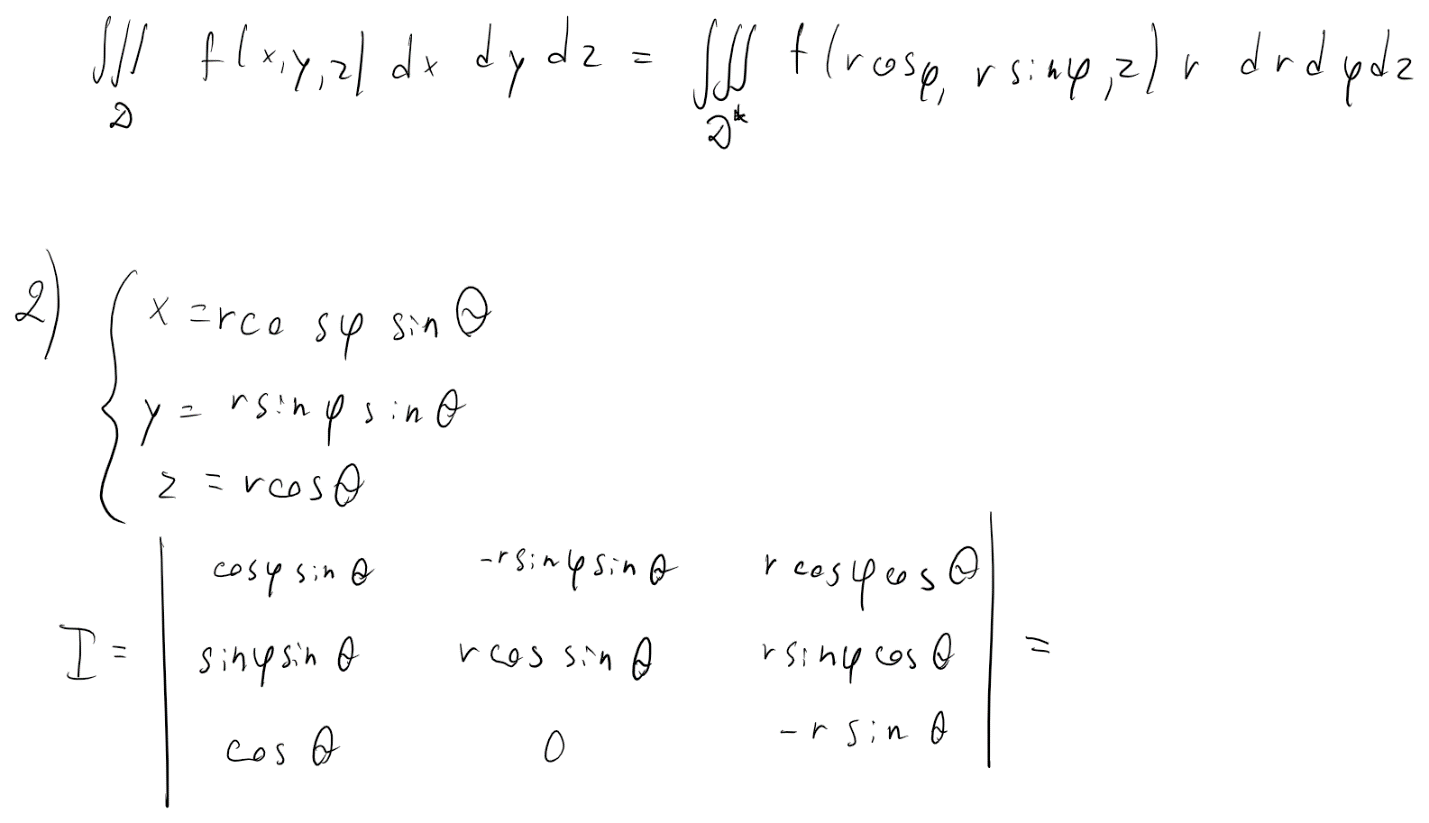 ∭_D f(x,y,z) dx dy dz = ∭_{D*} f(r cosφ, r sinφ, z) r dr dφ dz
2) { x = r cos φ sin θ
y = r sin φ sin θ
z = r cos θ
I = | cos φ sin θ   -r sin φ sin θ   r cos φ cos θ |
| sin φ sin θ   r cos sin θ   r sin φ cos θ | =
| cos θ   0   -r sin θ |